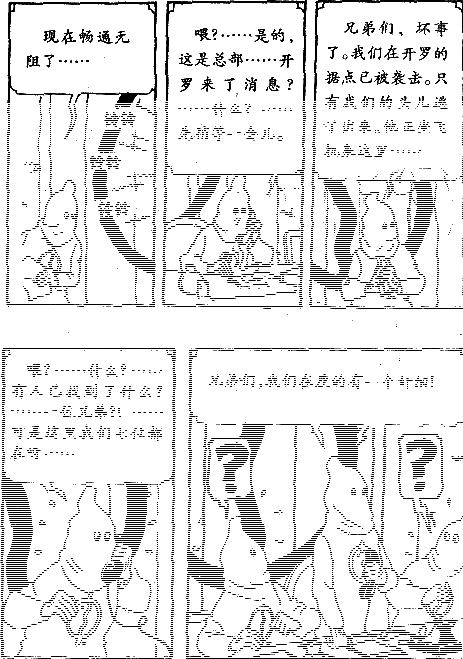 现在畅通无
阻了……
铃铃
铃铃
铃铃
喂?……是的,
这是总部……开
罗来了消息?
……什么?……
先稍等一会儿。
兄弟们、坏事
了。我们在开罗的
据点已被袭击。只
有我们的头儿逃
了出来。他正坐飞
机来这里……
喂?……什么?……
有人已找到了什么?
……一位兄弟?!……
可是这里我们七位都
在呀……
兄弟们,我们在座的有一个奸细!
?
?